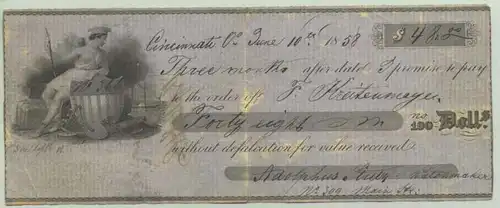 $ 48.00
Cincinnati O. June 10th 1858
Three months after date I promise to pay
to the order of F.
Forty eight no/100 Doll.s
without defalcation for value received
Adolphus
No. 309 Main St.